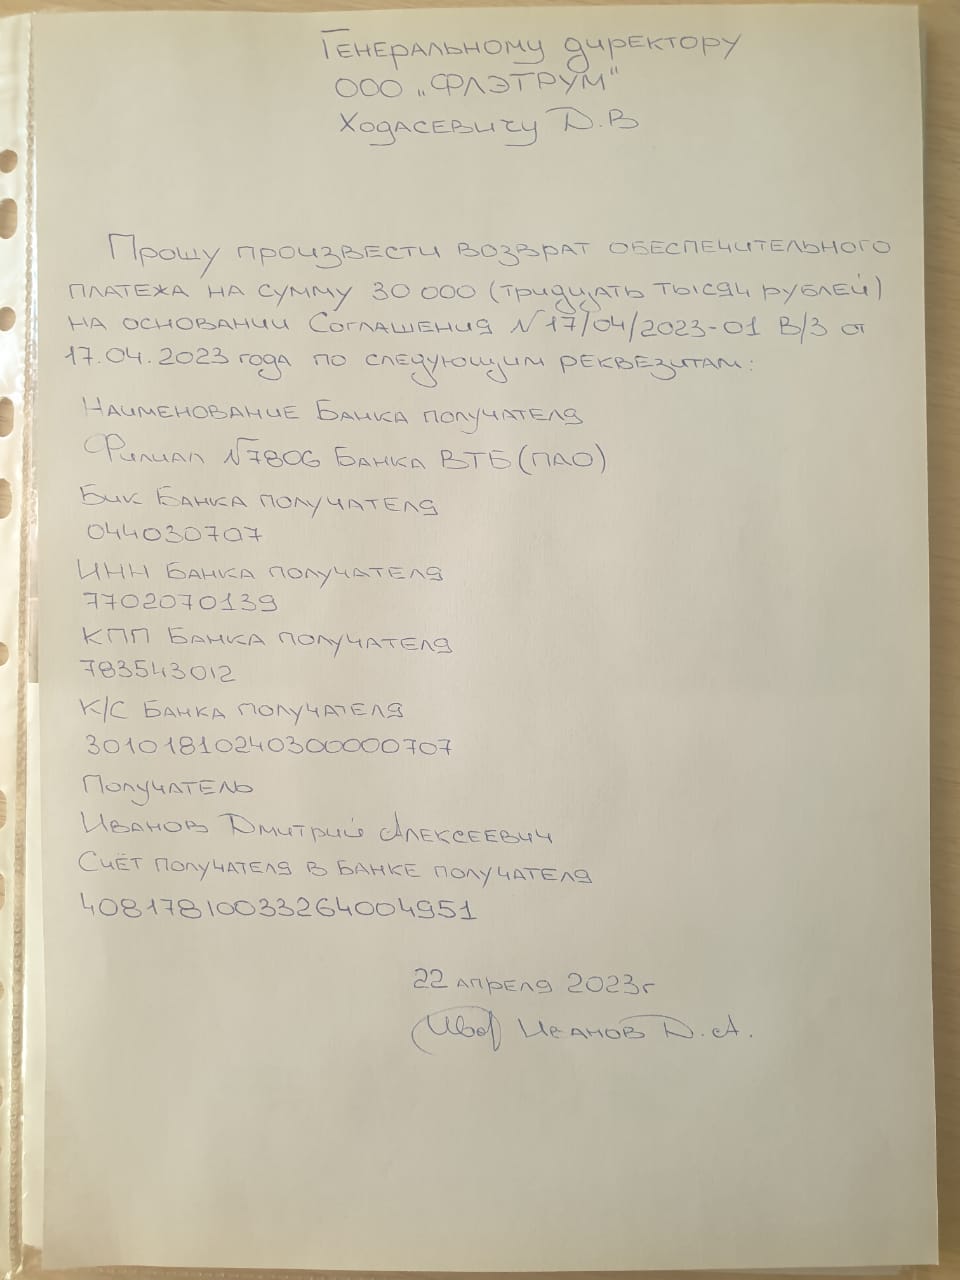 Генеральному директору
ООО „ФЛЭТРУМ"
Ходасевичу Д.В
Прошу произвести возврат обеспечительного
платежа на сумму 30 000 (тридцать тысяч рублей)
на основании Соглашения №17/04/2023-01 В/З от
17.04.2023 года по следующим реквезитам:
Наименование Банка получателя
Филиал №7806 Банка ВТБ (ПАО)
Бик Банка получателя
044030707
ИНН Банка получателя
7702070139
КПП Банка получателя
783543012
К/С Банка получателя
30101810240300000707
Получатель
Иванов Дмитрий Алексеевич
Счёт получателя в банке получателя
40817810033264004951
22 апреля 2023г
Иванов Д.А.